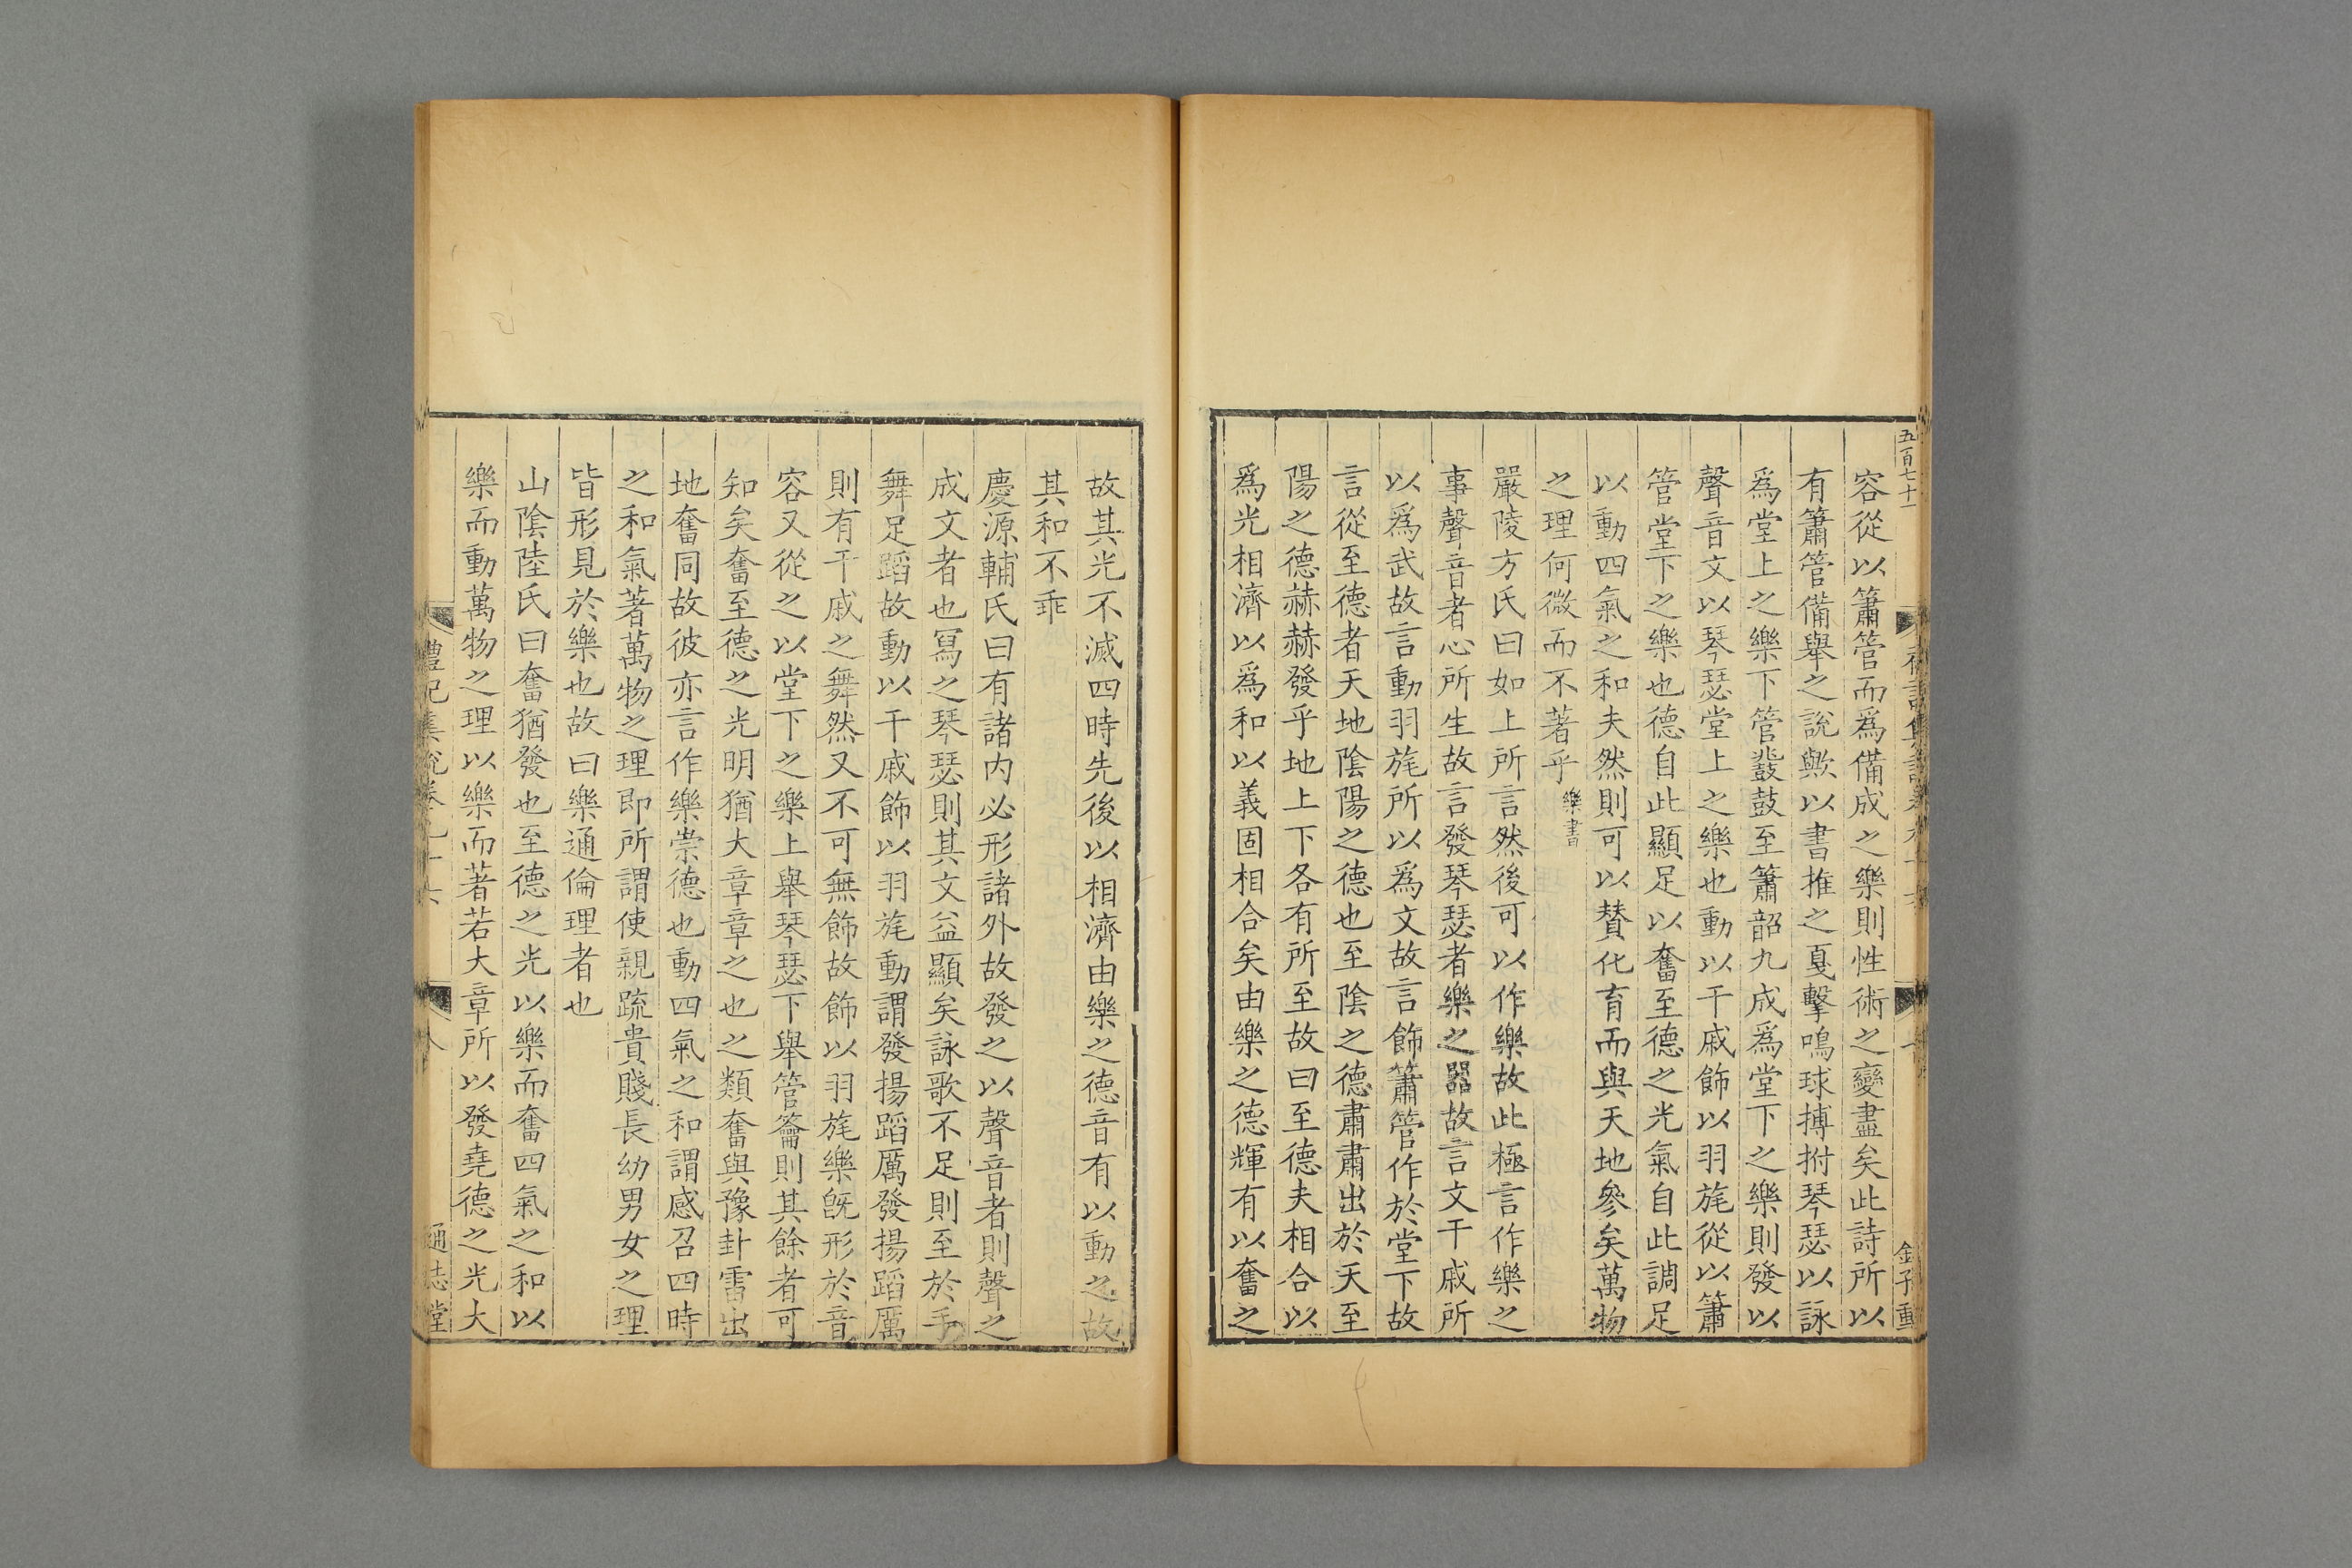 五百七十一
容從以簫管而爲備成之樂則性術之變盡矣此詩所以
有簫管備舉之說歟以書推之戛擊鳴球搏拊琴瑟以詠
爲堂上之樂下管鼗鼓至簫韶九成爲堂下之樂則發以
聲音文以琴瑟堂上之樂也動以干戚飾以羽旄從以簫
管堂下之樂也德自此顯足以奮至德之光氣自此調足
以動四氣之和夫然則可以賛化育而與天地參矣萬物
之理何微而不著乎樂書
嚴陵方氏曰如上所言然後可以作樂故此極言作樂之
事聲音者心所生故言發琴瑟者樂之器故言文干戚所
以爲武故言動羽旄所以爲文故言飾簫管作於堂下故
言從至德者天地陰陽之德也至陰之德肅肅出於天至
陽之德赫赫發乎地上下各有所至故曰至德夫相合以
爲光相濟以爲和以義固相合矣由樂之德輝有以奮之
故其光不滅四時先後以相濟由樂之德音有以動之故
其和不乖
慶源輔氏曰有諸内必形諸外故發之以聲音者則聲之
成文者也寫之琴瑟則其文益顯矣詠歌不足則至於手
舞足蹈故動以干戚飾以羽旄動謂發揚蹈厲發揚蹈厲
則有干戚之舞然又不可無飾故飾以羽旄樂旣形於音
容又從之以堂下之樂上舉琴瑟下舉管籥則其餘者可
知矣奮至德之光明猶大章章之也之類奮與豫卦雷出
地奮同故彼亦言作樂崇德也動四氣之和謂感召四時
之和氣著萬物之理即所謂使親疏貴賤長幼男女之理
皆形見於樂也故曰樂通倫理者也
山陰陸氏曰奮猶發也至德之光以樂而奮四氣之和以
樂而動萬物之理以樂而著若大章所以發堯德之光大
禮記集說卷九十六
八
通志堂